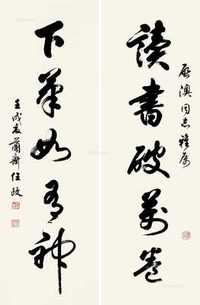 啟澳同志雅屬
讀書破萬卷
下筆如有神
壬戌友蘭齋任政